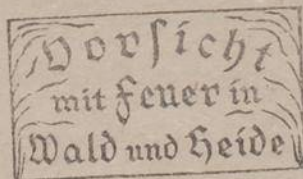 Vorsicht
mit Feuer in
Wald und Heide